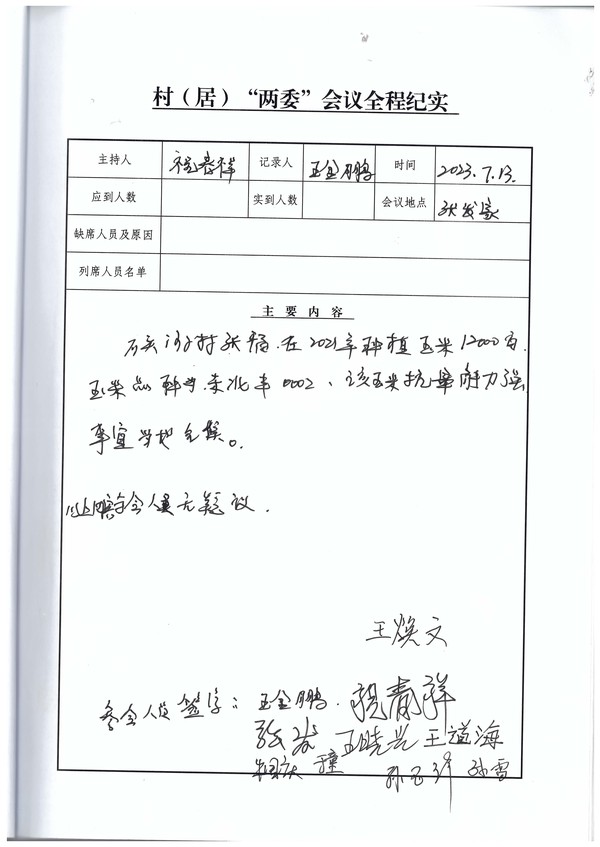 村（居）“两委”会议全程纪实
主持人 记录人 王金鹏 时间 2023.7.13.
应到人数 实到人数 会议地点 张发家
缺席人员及原因
列席人员名单
主要内容
村张 在2021年种植玉米12000亩.
玉米品种为 丰0002、该玉米抗旱能力强
宜当地气候。
以上内容参会人员无疑议.
王焕文
参会人员签字：王金鹏. 祥
张发 王晓兰 王道海
孙雪